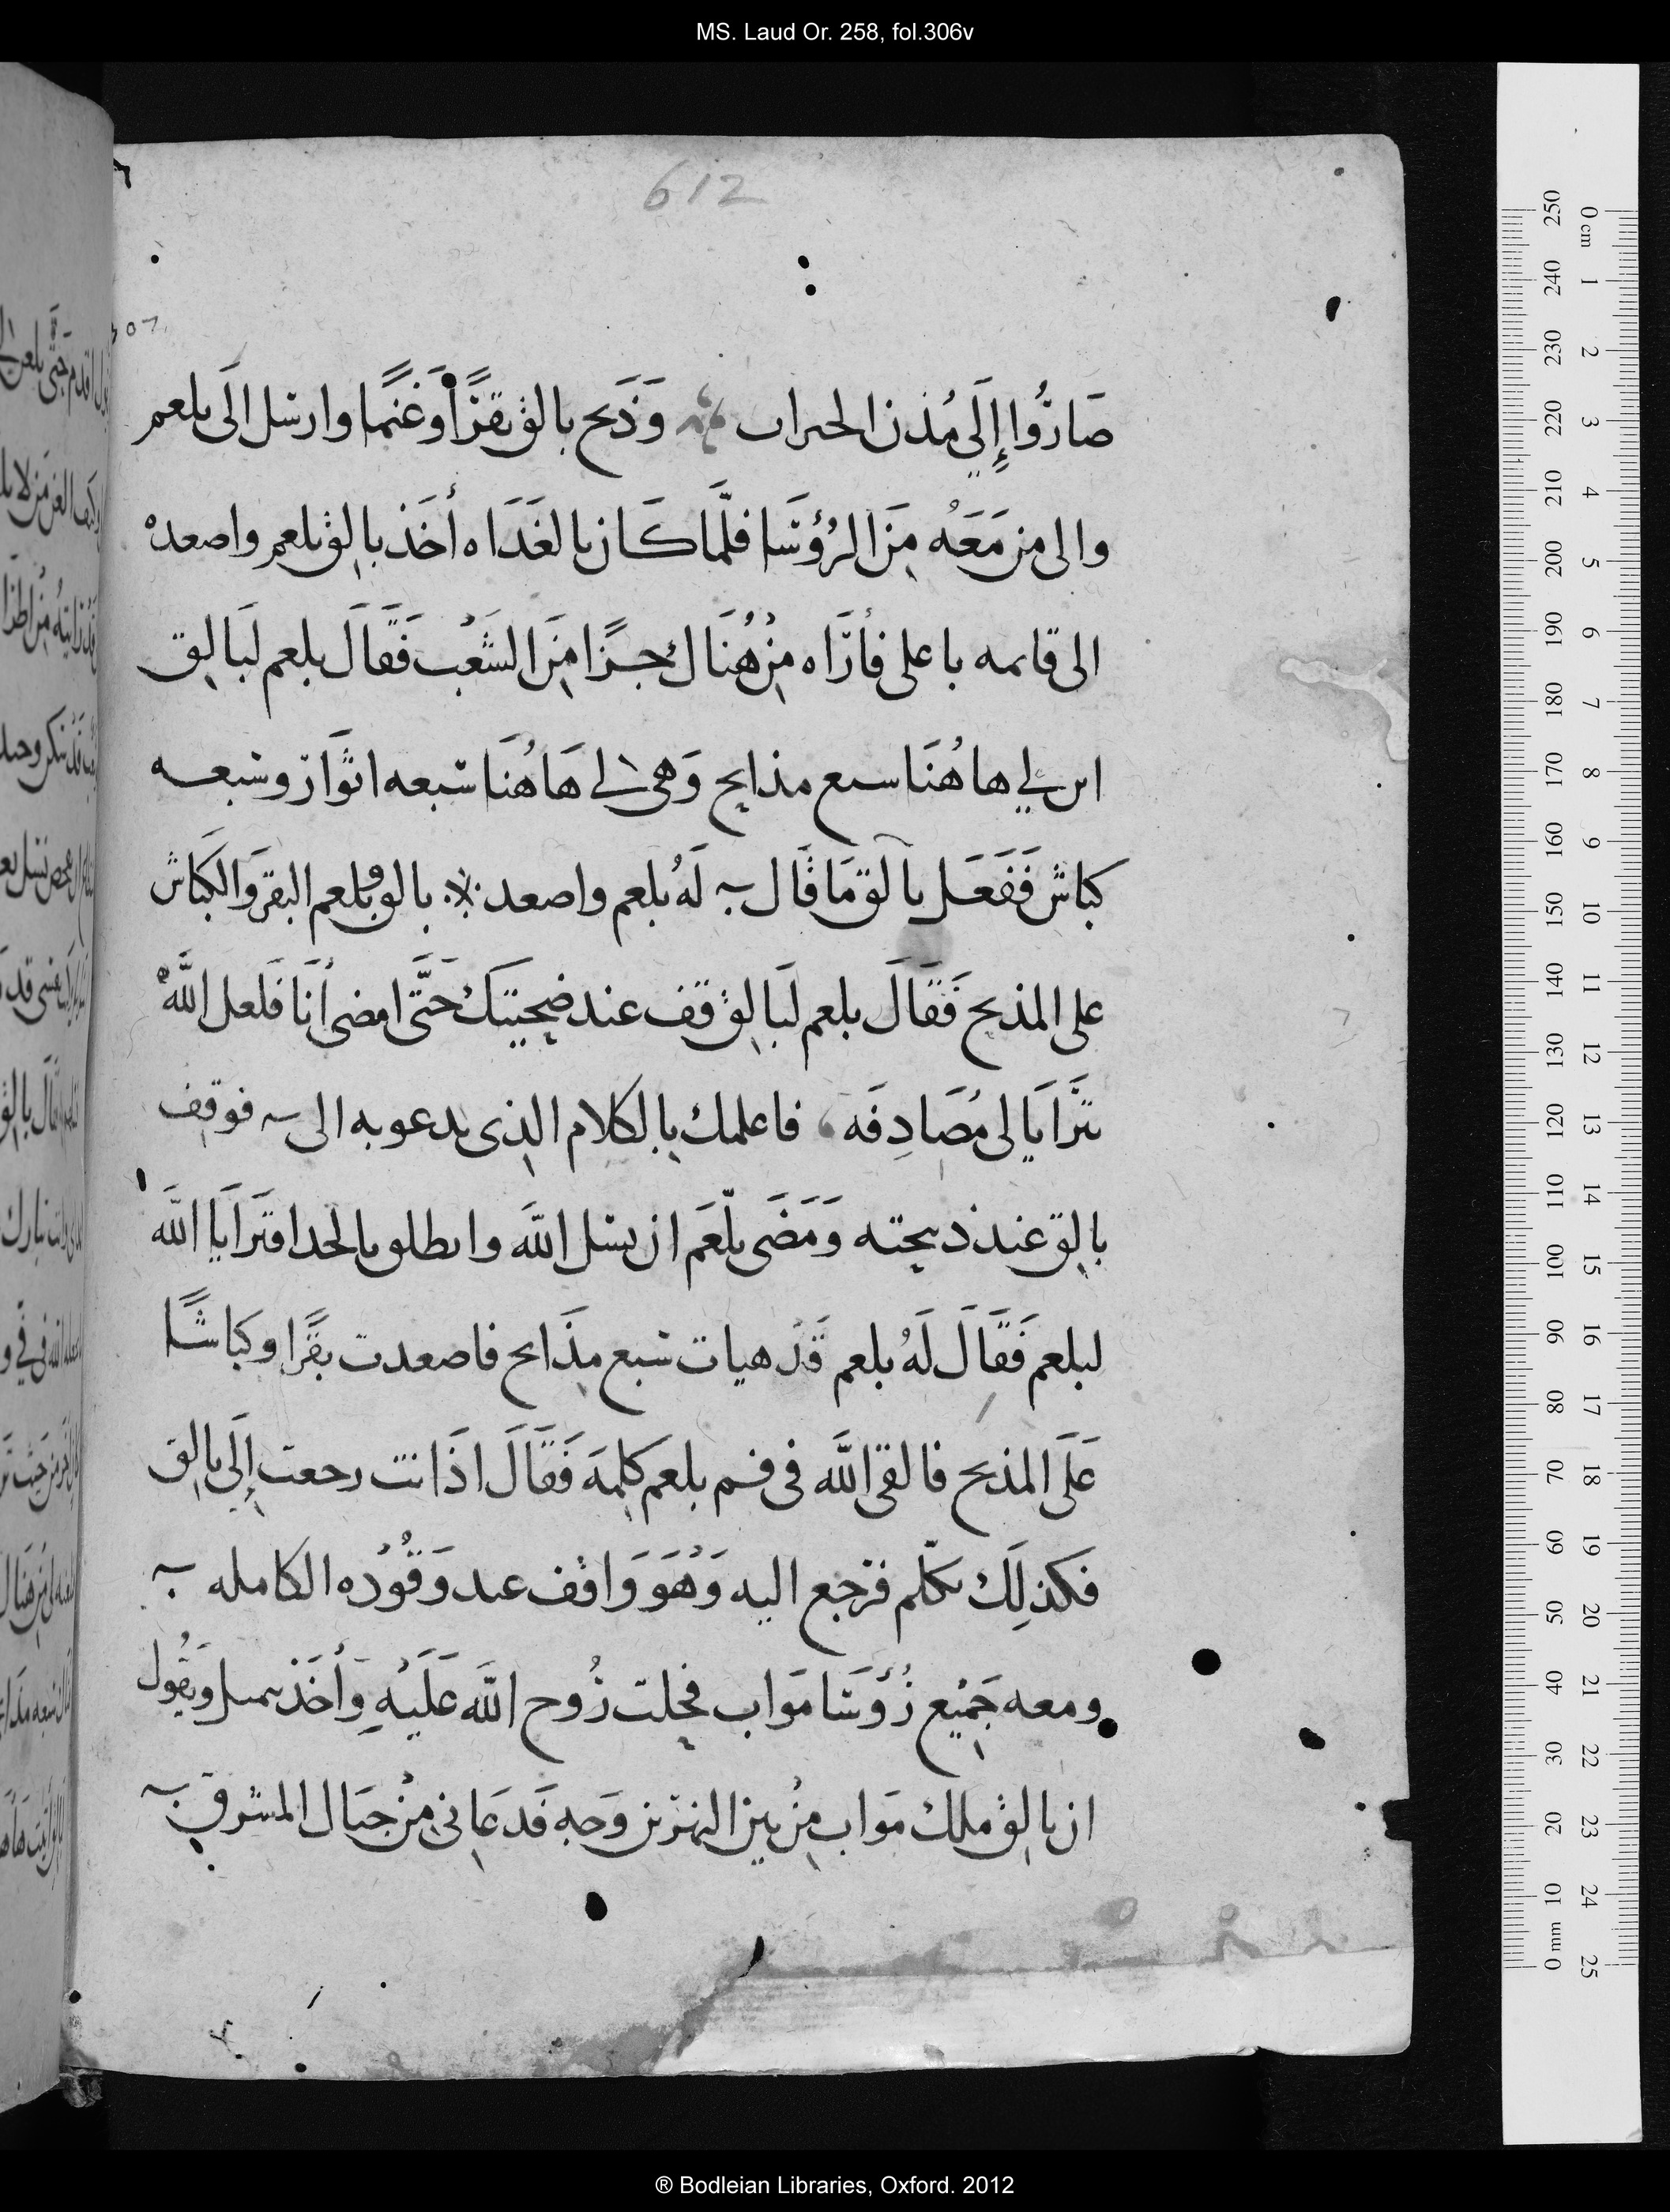 MS. Laud Or. 258, fol.306v
612
صَارُوا إِلَى مُدن الحىراب وَذَبح بالق بقرًا وَغَنمًا وارسل الَى بلعم
والى من مَعَهُ مِنَ الرُؤسَا فلمَّا كَان بالغَدَاه أخَذ بالِق بلعم واصعده
الى قامه باعلى فأرَاه مِنْ هُنَاك جزًا مِنَ الشَعْب فَقَالَ بلعم لبَالِق
ابن لي هاهُنَا سبع مذابح وَهى لى هَاهُنَا سبعه اثوَار وسبعه
كباش فَفَعَل بالق مَا قَال لَهُ بلعم واصعد بالق وبلعم البقر وَالكبَاش
على المذبح فَقَالَ بلعم لبَالِق قف عند ضحيتك حَتَّى امضى أنَا فَلعل اللَّهُ
يترَايَا لى مُصَادِفَه فاعلمك بِالكلام الذِى يدعو به الى فوقف
بالِق عند ذبيحته وَمَضَى بلعَم ان يسل اللَّه وانطلق بالحدا فترَايَا اللَّه
لبلعم فَقَالَ لَهُ بلعم قَدْ هيات سبع مذَابح فاصعدت بقرًا وكباشًا
عَلَى المذبح فالقى اللَّه فى فم بلعم كلِمَه فَقَالَ اذَا انت رجعت إِلَى بالِق
فكذلِكَ تكلّم فرجع اليه وَهُوَ وَاقف عند وَقُودُه الكامله
ومعه جَميْع رُؤسَا مَوَاب فحلت رُوح اللَّه عَلَيْهِ وَأخَذ يمثل وَيقُول
ان بالِق ملك مَوَاب مِنْ بين النهرين وَجه فَدعَانِى مِنْ جبَال المشرق
0 cm 1 2 3 4 5 6 7 8 9 10 11 12 13 14 15 16 17 18 19 20 21 22 23 24 25
250 240 230 220 210 200 190 180 170 160 150 140 130 120 110 100 90 80 70 60 50 40 30 20 10 0 mm
® Bodleian Libraries, Oxford. 2012